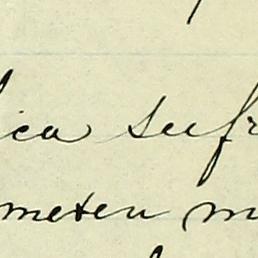 ica sufr
meten m